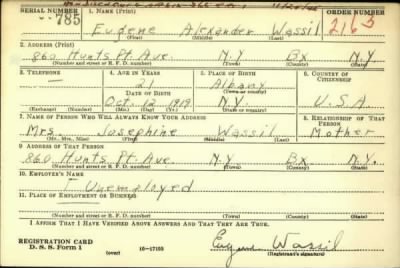 SERIAL NUMBER 1. NAME (Print) ORDER NUMBER
785 Eugene Alexander Wassil 2163
(First) (Middle) (Last)
2. ADDRESS (Print)
860 Hunts Pt. Ave. N.Y. Bx N.Y.
(Number and street or R. F. D. number) (Town) (County) (State)
3. TELEPHONE 4. AGE IN YEARS 5. PLACE OF BIRTH 6. COUNTRY OF CITIZENSHIP
— 21 Albany
DATE OF BIRTH (Town or county)
Oct. 12 1919 N.Y. U.S.A.
(Exchange) (Number) (Mo.) (Day) (Yr.) (State or country)
7. NAME OF PERSON WHO WILL ALWAYS KNOW YOUR ADDRESS 8. RELATIONSHIP OF THAT PERSON
Mrs. Josephine Wassil Mother
(Mr., Mrs., Miss) (First) (Middle) (Last)
9. ADDRESS OF THAT PERSON
860 Hunts Pt. Ave. N.Y. Bx. N.Y.
(Number and street or R. F. D. number) (Town) (County) (State)
10. EMPLOYER'S NAME
Unemployed
11. PLACE OF EMPLOYMENT OR BUSINESS
(Number and street or R. F. D. number) (Town) (County) (State)
I AFFIRM THAT I HAVE VERIFIED ABOVE ANSWERS AND THAT THEY ARE TRUE.
REGISTRATION CARD
D. S. S. Form 1 16—17105 Eugene Wassil
(over) (Registrant's signature)